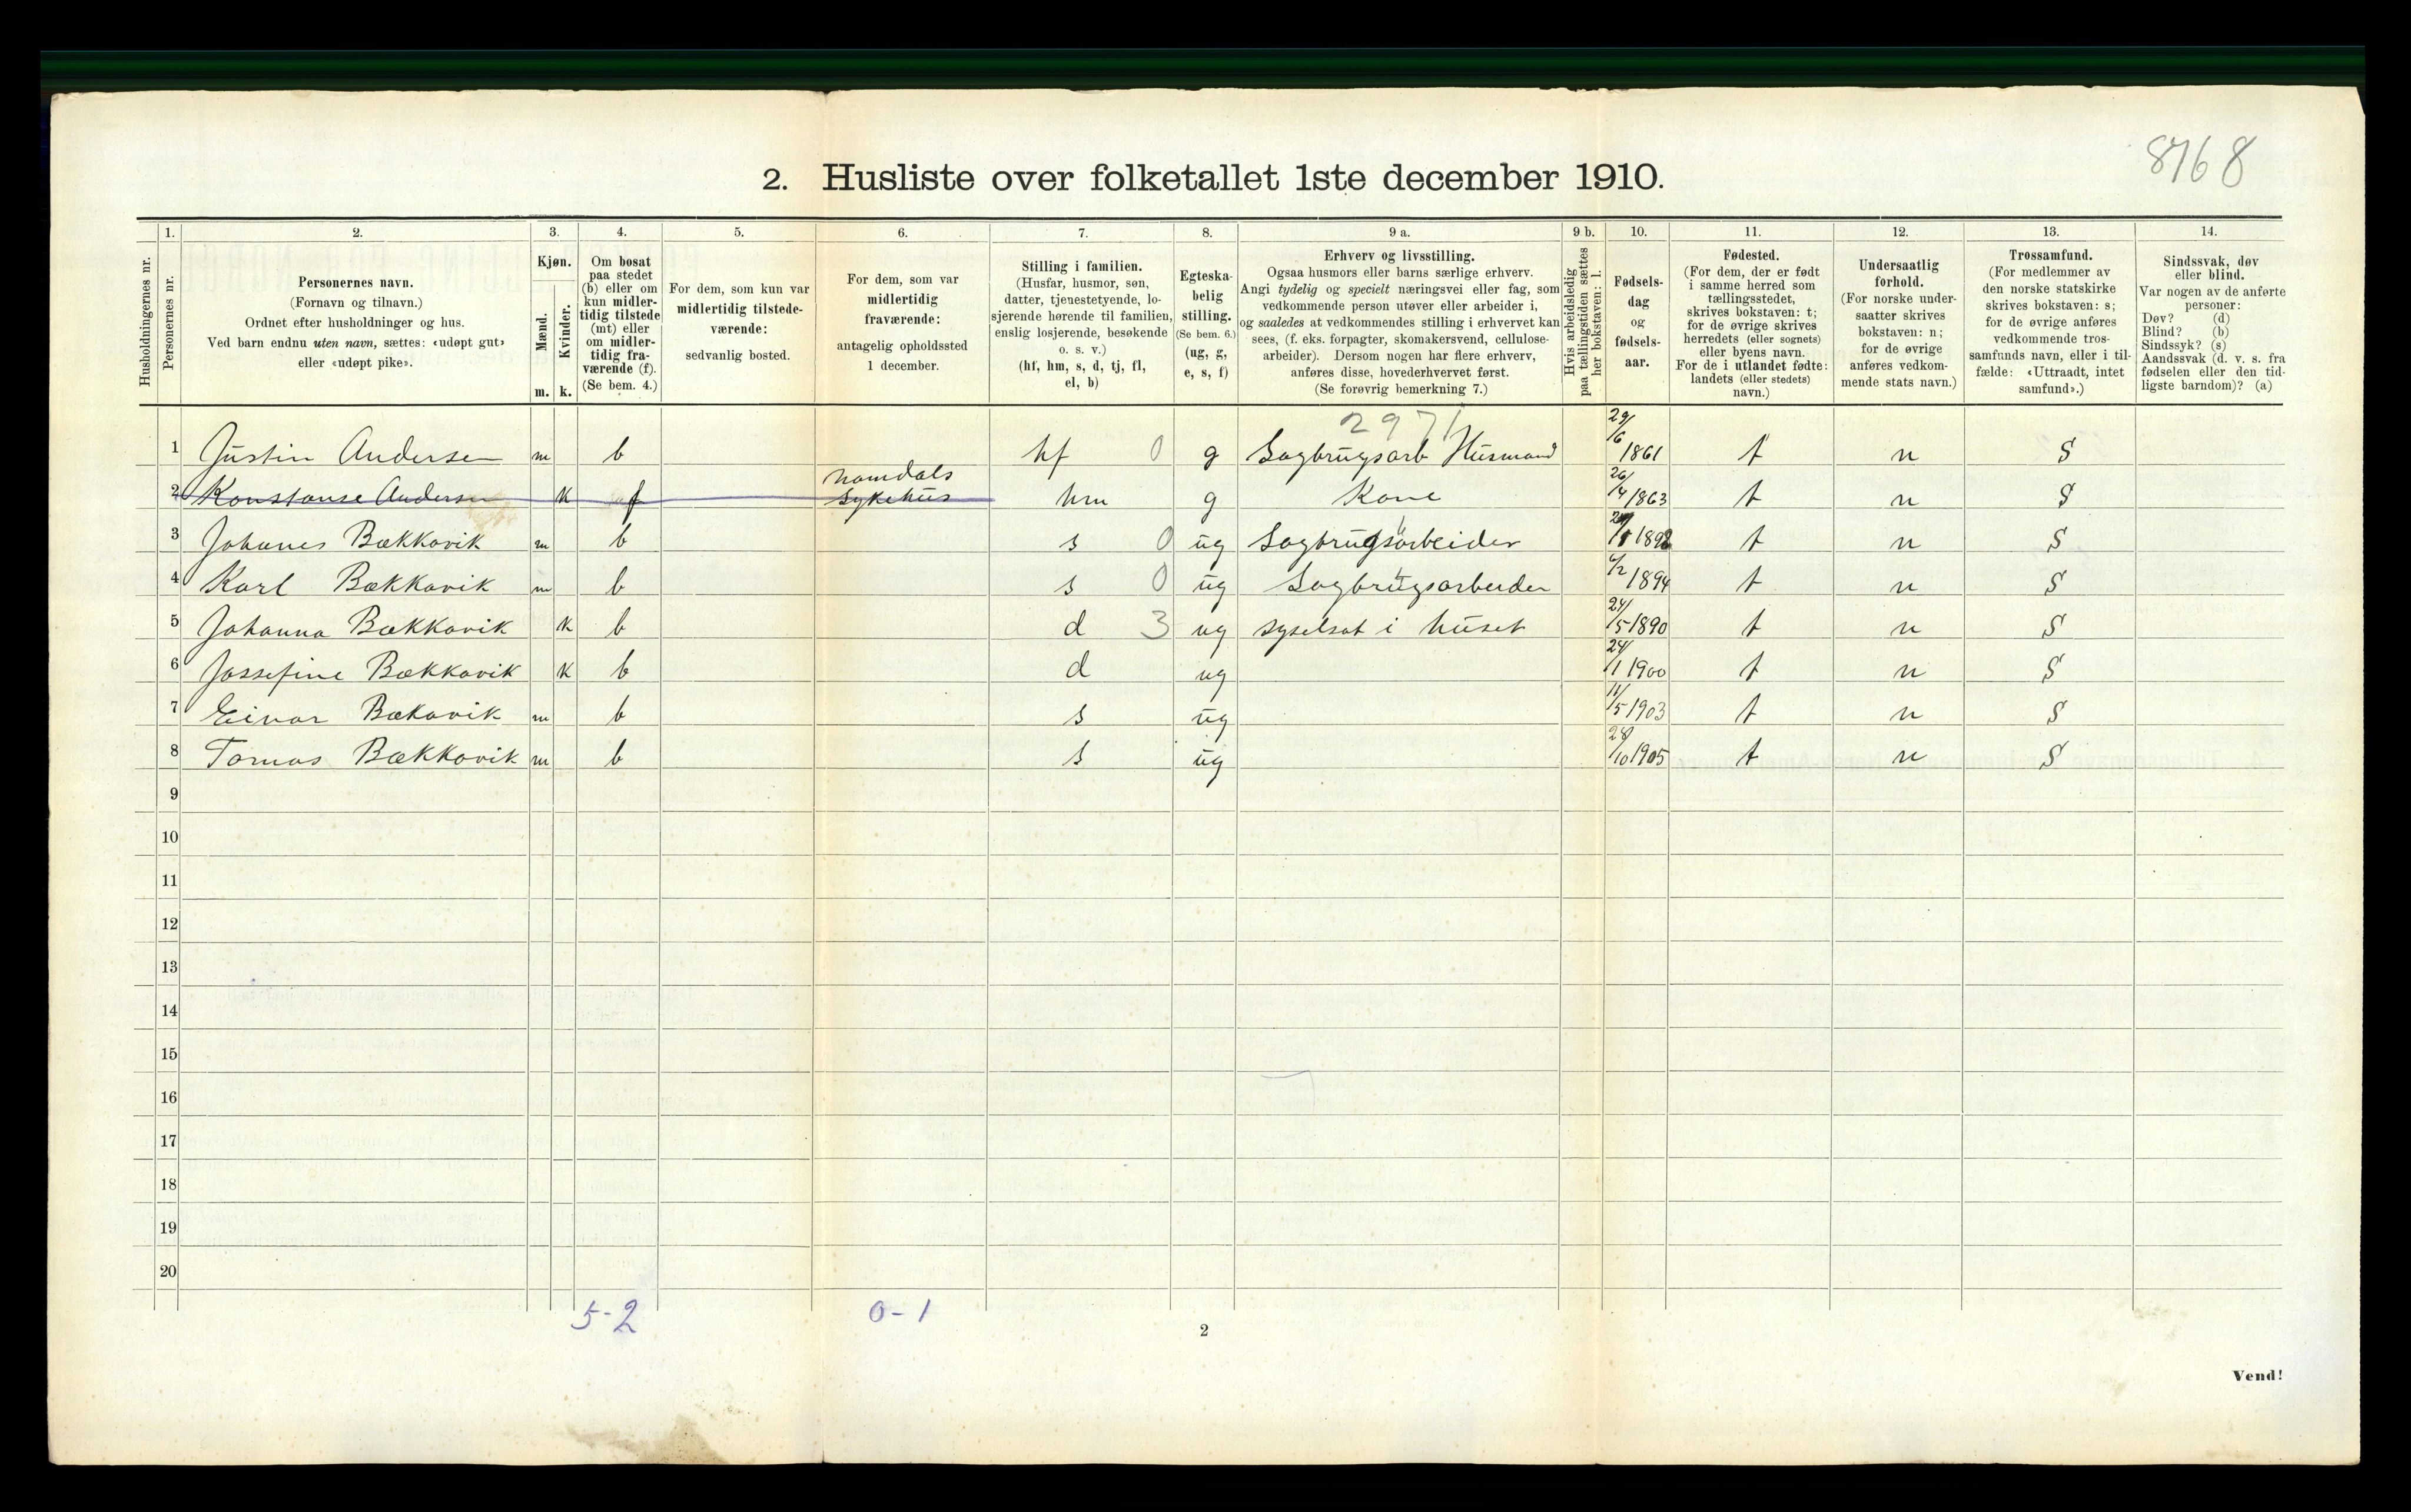 8768
2. Husliste over folketallet 1ste december 1910.
Husholdningernes nr.
1.
Personernes nr.
2.
Personernes navn.
(Fornavn og tilnavn.)
Ordnet efter husholdninger og hus.
Ved barn endnu uten navn, sættes: «udøpt gut»
eller «udøpt pike».
3.
Kjøn.
Mænd.
Kvinder.
m. k.
4.
Om bosat
paa stedet
(b) eller om
kun midler-
tidig tilstede
(mt) eller
om midler-
tidig fra-
værende (f).
(Se bem. 4.)
5.
For dem, som kun var
midlertidig tilstede-
værende:
sedvanlig bosted.
6.
For dem, som var
midlertidig
fraværende:
antagelig opholdssted
1 december.
7.
Stilling i familien.
(Husfar, husmor, søn,
datter, tjenestetyende, lo-
sjerende hørende til familien,
enslig losjerende, besøkende
o. s. v.)
(hf, hm, s, d, tj, fl,
el, b)
8.
Egteska-
belig
stilling.
(Se bem. 6.)
(ug, g,
e, s, f)
9 a.
Erhverv og livsstilling.
Ogsaa husmors eller barns særlige erhverv.
Angi tydelig og specielt næringsvei eller fag, som
vedkommende person utøver eller arbeider i,
og saaledes at vedkommendes stilling i erhvervet kan
sees, (f. eks. forpagter, skomakersvend, cellulose-
arbeider). Dersom nogen har flere erhverv,
anføres disse, hovederhvervet først.
(Se forøvrig bemerkning 7.)
9 b.
Hvis arbeidsledig
paa tællingstiden sættes
her bokstaven: l.
10.
Fødsels-
dag
og
fødsels-
aar.
11.
Fødested.
(For dem, der er født
i samme herred som
tællingsstedet,
skrives bokstaven: t;
for de øvrige skrives
herredets (eller sognets)
eller byens navn.
For de i utlandet fødte:
landets (eller stedets)
navn.)
12.
Undersaatlig
forhold.
(For norske under-
saatter skrives
bokstaven: n;
for de øvrige
anføres vedkom-
mende stats navn.)
13.
Trossamfund.
(For medlemmer av
den norske statskirke
skrives bokstaven: s;
for de øvrige anføres
vedkommende tros-
samfunds navn, eller i til-
fælde: «Uttraadt, intet
samfund».)
14.
Sindssvak, døv
eller blind.
Var nogen av de anførte
personer:
Døv? (d)
Blind? (b)
Sindssyk? (s)
Aandssvak (d. v. s. fra
fødselen eller den tid-
ligste barndom)? (a)
2971
1 Justin Andersen m b hf 0 g Sagbrugsarb Husmand 29/6 1861 t n S
2 Konstanse Andersen k f Namdals sykehus hm g Kone 26/4 1863 t n S
3 Johanes Bækkavik m b s 0 ug Sagbrugsarbeider 1892 t n S
4 Karl Bækkavik m b s 0 ug Sagbrugsarbeider 6/2 1894 t n S
5 Johanna Bækkavik k b d 3 ug syselsat i huset 24/5 1890 t n S
6 Jossefine Bækkavik k b d ug 24/1 1900 t n S
7 Einar Bækavik m b s ug 11/5 1903 t n S
8 Tomas Bækkavik m b s ug 28/10 1905 t n S
9
10
11
12
13
14
15
16
17
18
19
20
5-2 0-1
2
Vend!